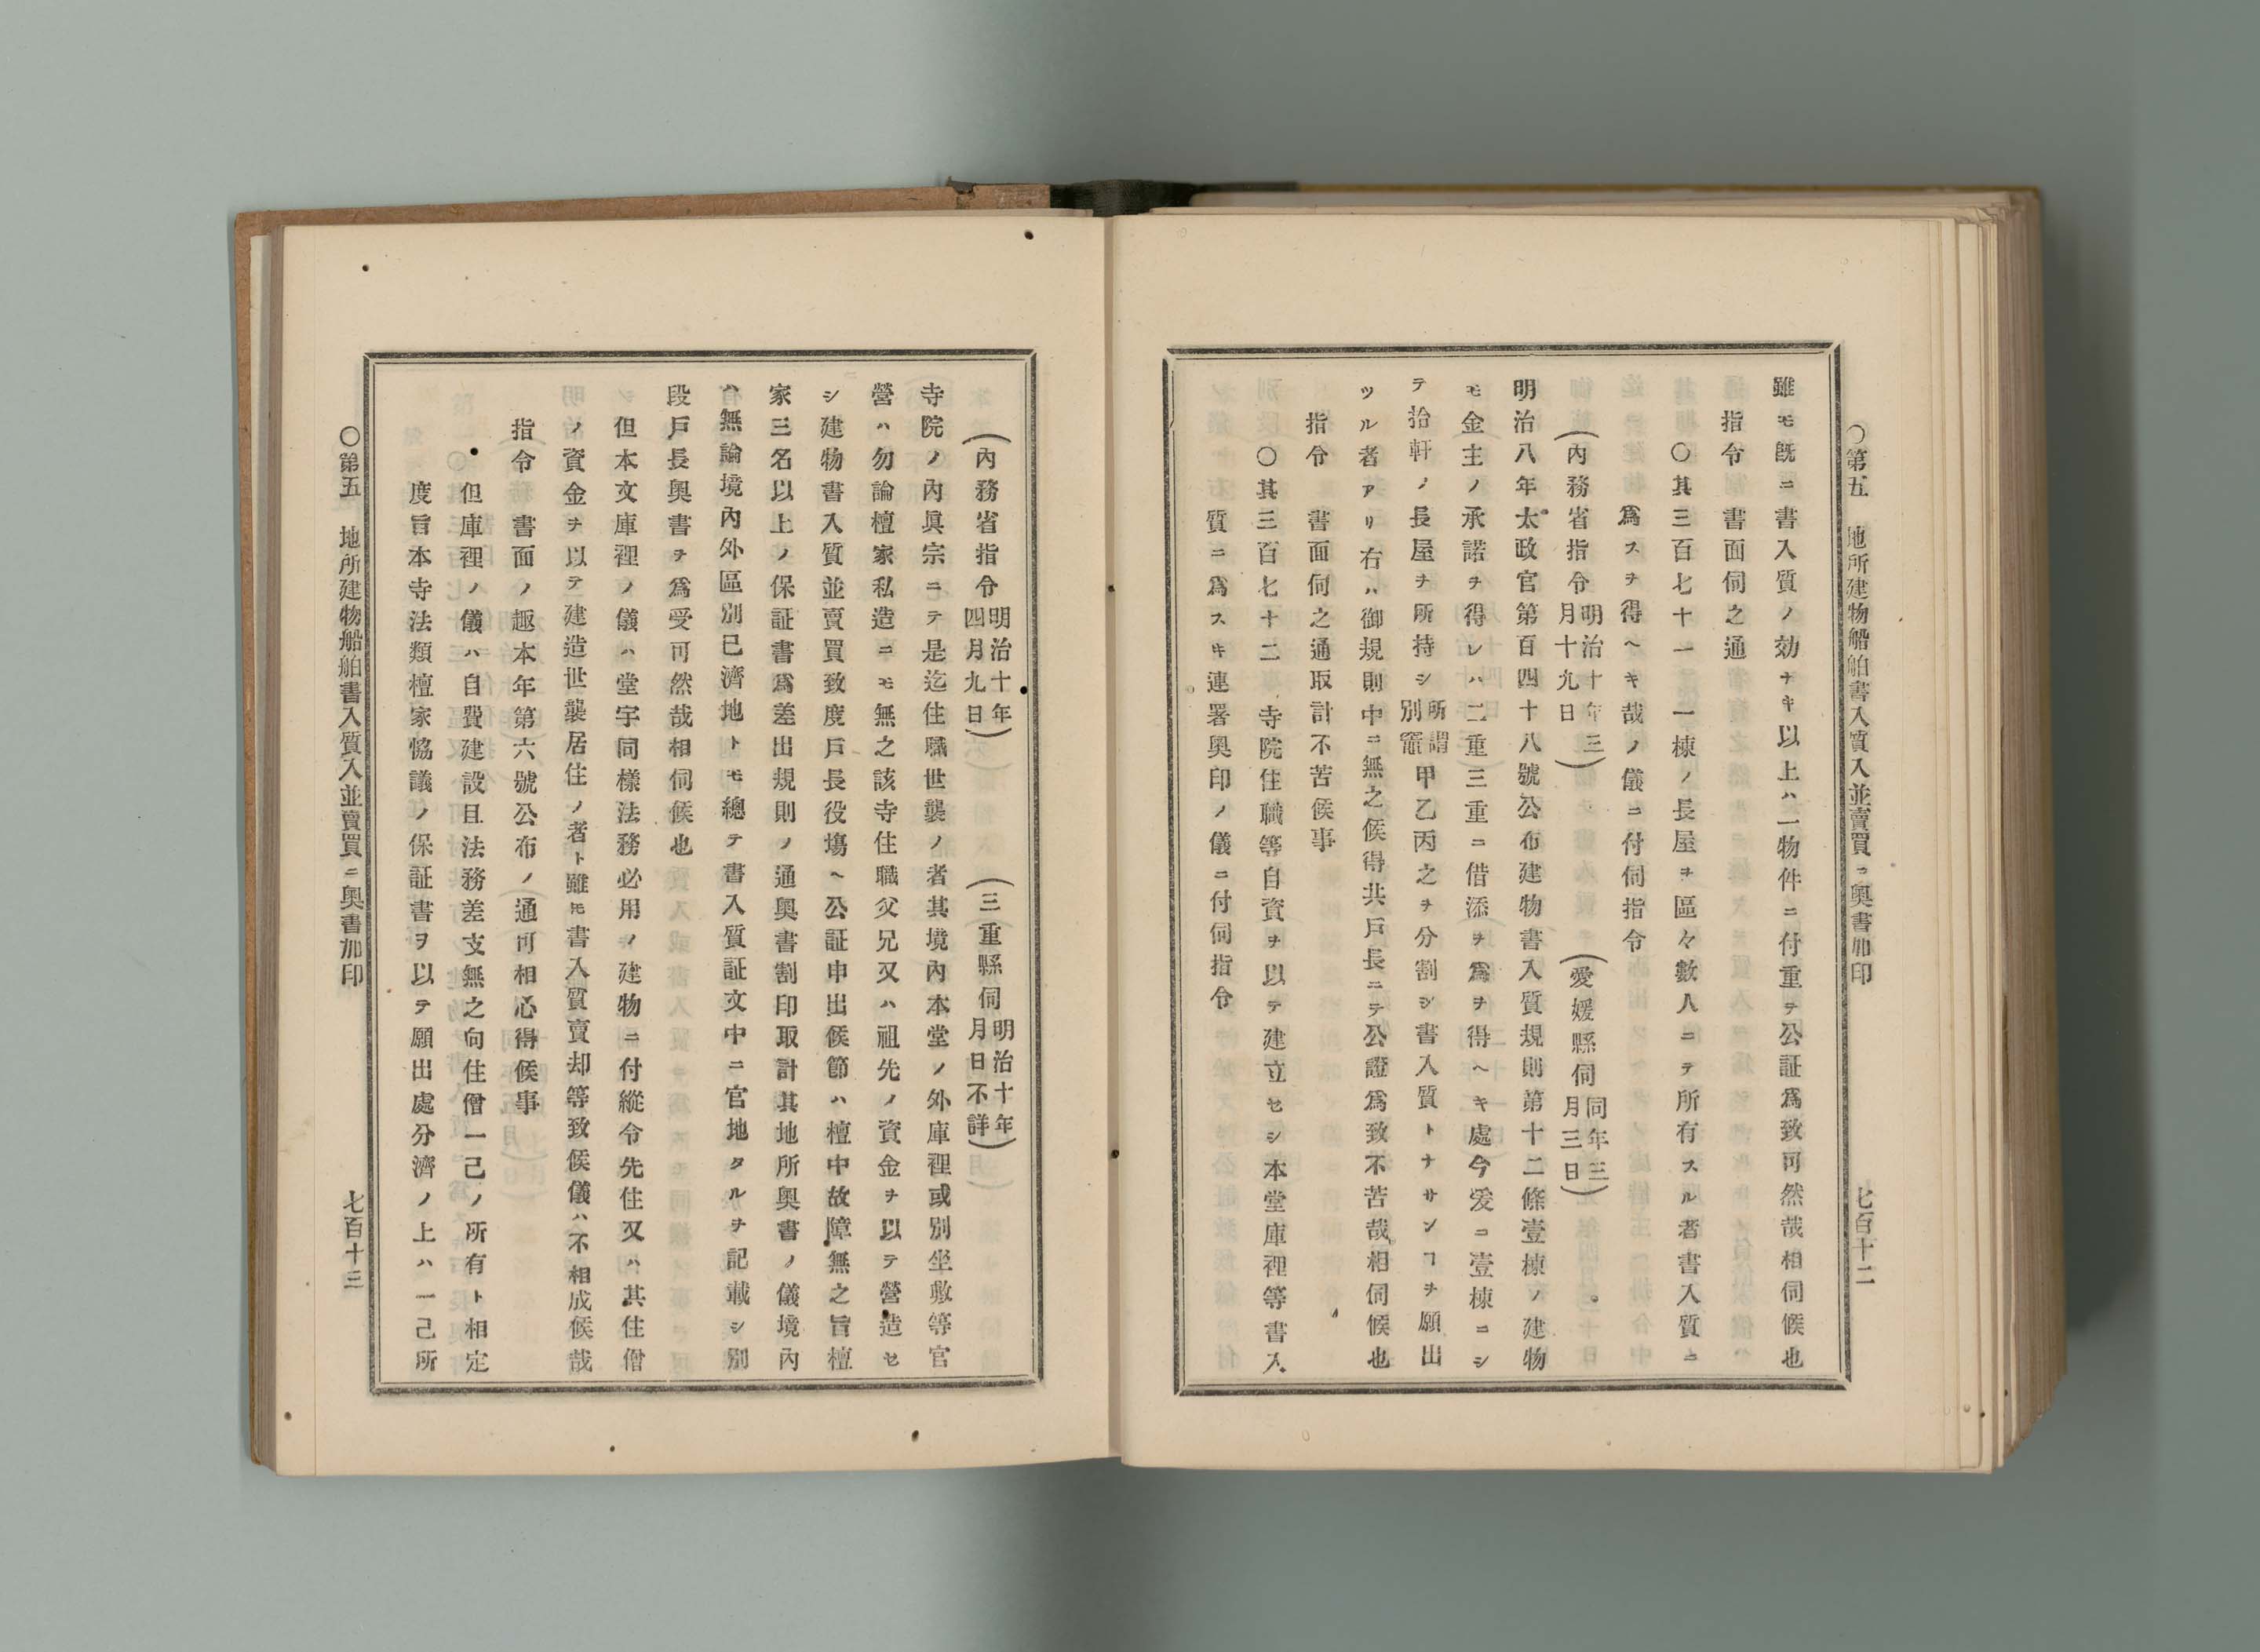 〇第五　地所建物船舶書入質入並賣買ニ奧書加印　七百十二
雖モ旣ニ書入質ノ効ナキ以上ハ一物件ニ付重テ公証爲致可然哉相伺候也
指令　書面伺之通
〇其三百七十一　一棟ノ長屋ヲ區々數人ニテ所有スル者書入質ニ
爲スヲ得ヘキ哉ノ儀ニ付伺指令
(內務省指令明治十年三月十九日)　(愛媛縣伺同年三月三日)
明治八年太政官第百四十八號公布建物書入質規則第十二條壹棟ノ建物
モ金主ノ承諾ヲ得レハ二重三重ニ借添ヲ爲ヲ得ヘキ處今爰ニ壹棟ニシ
テ拾軒ノ長屋ヲ所持シ所謂別竈甲乙丙之ヲ分割シ書入質トナサンヿヲ願出
ツル者アリ右ハ御規則中ニ無之候得共戶長ニテ公證爲致不苦哉相伺候也
指令　書面伺之通取計不苦候事
〇其三百七十二　寺院住職等自資ヲ以テ建立セシ本堂庫裡等書入
質ニ爲スキ連署奧印ノ儀ニ付伺指令
(內務省指令明治十年四月九日)　(三重縣伺明治十年月日不詳)
寺院ノ內眞宗ニテ是迄住職世襲ノ者其境內本堂ノ外庫裡或別坐敷等官
營ハ勿論檀家私造ニモ無之該寺住職父兄又ハ祖先ノ資金ヲ以テ營造セ
シ建物書入質並賣買致度戶長役塲ヘ公証申出候節ハ檀中故障無之旨檀
家三名以上ノ保証書爲差出規則ノ通奧書割印取計其地所奧書ノ儀境內
有無論境內外區別已濟地トモ總テ書入質証文中ニ官地タルヲ記載シ別
段戶長奧書ヲ爲受可然哉相伺候也
但本文庫裡ノ儀ハ堂宇同樣法務必用ノ建物ニ付縱令先住又ハ其住僧
ノ資金ヲ以テ建造世襲居住ノ者ト雖モ書入質賣却等致候儀ハ不相成候哉
指令　書面ノ趣本年第六號公布ノ通可相心得候事
但庫裡ノ儀ハ自費建設且法務差支無之向住僧一己ノ所有ト相定
度旨本寺法類檀家恊議ノ保証書ヲ以テ願出處分濟ノ上ハ一己所
〇第五　地所建物船舶書入質入並賣買ニ奧書加印　七百十三